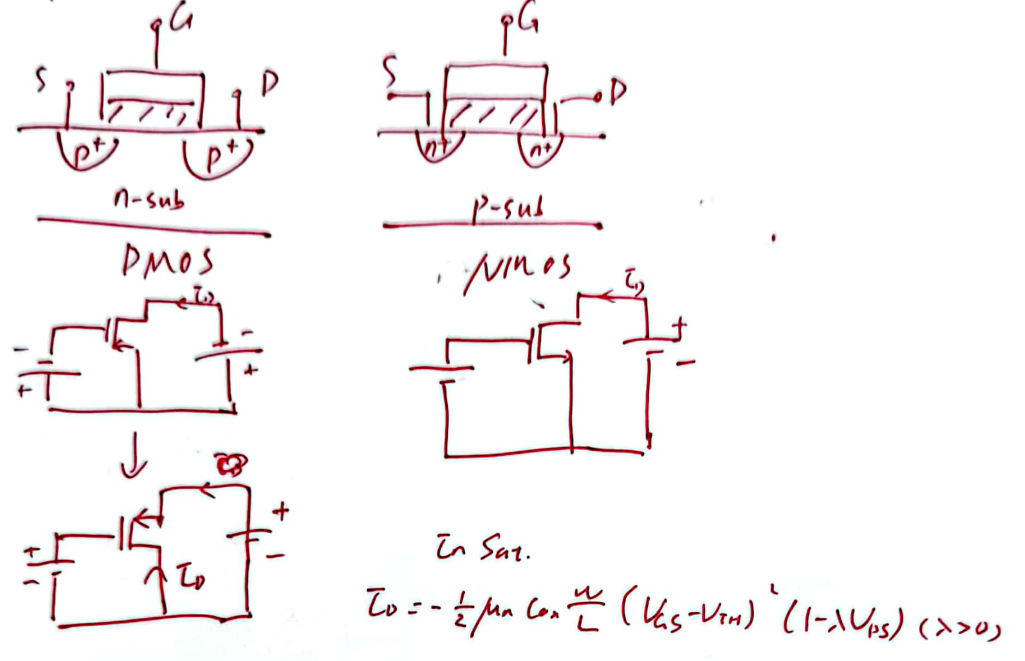 G
S D
p+ p+
n-sub
PMOS
I_D
- -
+ +
+ +
- -
I_D
G
S D
n+ n+
p-sub
NMOS
I_D
+
-
In Sat.
I_D = - 1/2 μn Cox W/L (V_GS - V_TH)² (1 - λV_DS) (λ>0)